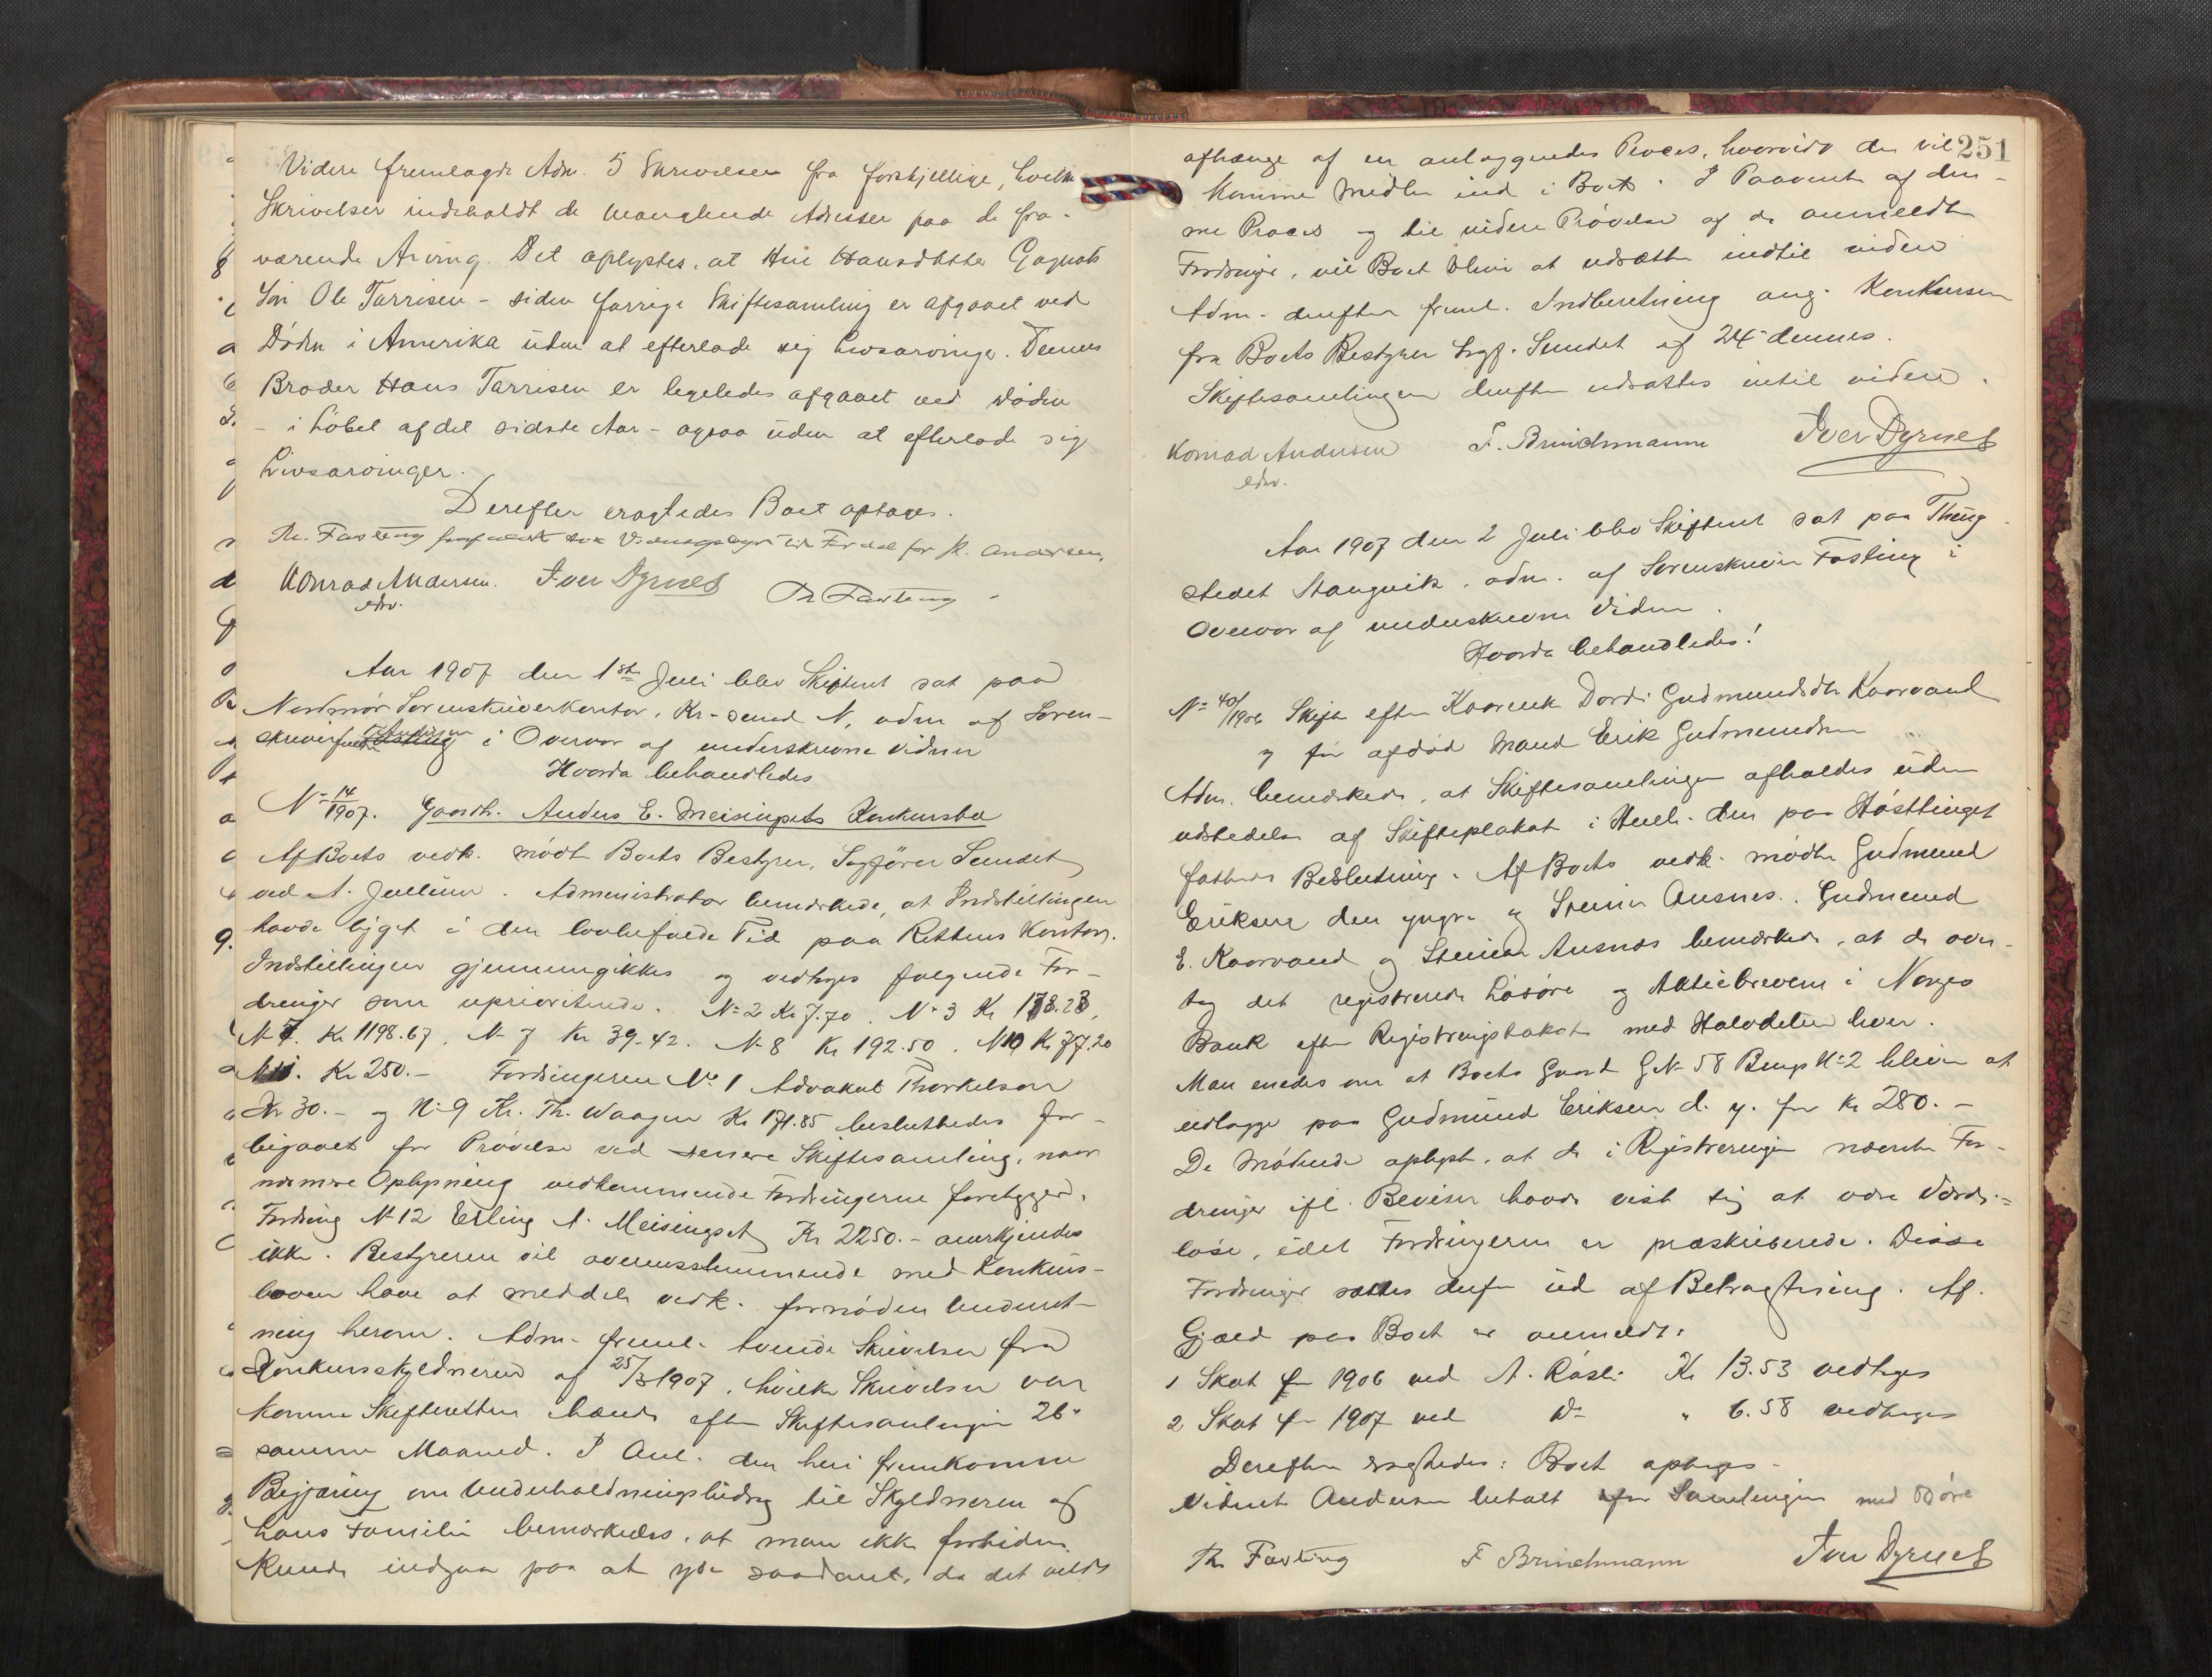 Videre fremlagde Adm. 5 Skrivelser fra forskjellige, hvilke
Skrivelser indeholdt de manglende Adresser paa de fra-
værende Arving. Det oplystes, at Hansdatter
Søn Ole Tarrisen - siden forrige Skiftesamling er afgaaet ved
Døden i Amerika uden at efterlade sig Livsarvinger. Dennes
Broder Hans Tarrisen er ligeledes afgaaet ved Døden
- i Løbet af det sidste Aar - ogsaa uden at efterlade sig
Livsarvinger.
Derefter eragtedes Boet optages.
Th. Fasting som for K. Andersen,
Konrad Andersen. Iver Dyrnes Th Fasting
edsv.
Aar 1907 den 1ste Juli blev Skifteret sat paa
Nordmør Sorenskriverkontor, Kr-sund N, adm af Soren-
skriverfuldm. Andersen i Overvær af underskrevne Vidner
Hvorda behandledes
No 14/1907. Gaardb. Anders E. Meisingsets Konkursbo
Af Boets vedk. mødte Boets Bestyrer, Sagfører Sundet
ved A. Jullum. Administrator bemærkede, at Indstillingen
havde ligget i den lovbefalede Tid paa Rettens Kontor.
Indstillingen gjennemgikkes og vedtoges følgende For-
dringer som uprioriterede. No 2 Kr 7.70. No 3 Kr 178.23,
No 7. Kr 1198.67, No 7 Kr 39.42. No 8 Kr 192.50. No 10 Kr 77.20
No 11. Kr 250.- Fordringerne No 1 Advokat Thorkelson
Kr 30.- og No 9 Kr. Th. Waagen Kr 171.85 besluttedes for-
bigaaet for Prøvelse ved senere Skiftesamling, naar
nærmere Oplysning vedkommende Fordringerne foreligger.
Fordring No 12 Erling A. Meisingset Kr 2250.- anerkjendes
ikke. Bestyreren vil overensstemmende med Konkurs-
loven have at meddele vedk. fornøden Underret-
ning herom. Adm. freml. tvende Skrivelser fra
Konkursskyldneren af 25/3 1907, hvilke Skrivelser var
komne Skifteretten ihænde efter Skiftesamlingen 26.
samme Maaned. I Anl. den heri fremkomne
Begjæring om Underholdningsbidrag til Skyldneren og
hans Familie bemærkedes, at man ikke forhiden
kunde indgaa paa at yde saadant, da det vilde
251
afhænge af en anlæggendes Proces, hvorvidt der vil
komme Midler ind i Boet. I Paavente af den-
ne Proces og til videre Prøvelse af de anmeldte
Fordringer, vil Boet blive at udsætte indtil videre
Adm. derefter freml. Indberetning ang. Konkursen
fra Boets Bestyrer Sagf. Sundet af 24. dennes.
Skiftesamlingen derefter udsattes intil videre.
Konrad Andersen F. Brinchmann Iver Dyrnes
edsv.
Aar 1907 den 2 Juli blev Skifteret sat paa Thing-
stedet Stangvik, adm. af Sorenskriver Fasting i
Overvær af underskrevne Vidner.
Hvorda behandledes!
No 40/1906 Skifte efter Kaarenke Dordi Gudmundsdtr Kaarvand
og før afdød Mand Erik Gudmundsen
Adm. bemærkede, at Skiftesamlingen afholdes uden
udstedelse af Skifteplakat i Henh. den paa Høstthinget
fattede Beslutning. Af Boets vedk. mødte Gudmund
Eriksen den yngre og Steinar Ansnes. Gudmund
E. Kaarvand og Steinar Ansnæs bemærkede, at de over-
tog det registrerede Løsøre og Aktiebrevene i Norges
Bank efter Registreringstakst med Halvdelen hver.
Man enedes om at Boets Gaard G.No 58 Brugs No 2 bliver at
udlægge paa Gudmund Eriksen d. y. for Kr 280.-
De Mødende oplyste, at de i Registreringen nævnte For-
dringer ifl. Beviser havde vist sig at være Værdi-
løse, idet Fordringerne er præskriberede. Disse
Fordringer sættes derfor ud af Betragtning. Af
Gjæld paa Boet er anmeldt:
1 Skat for 1906 ved A. Røsli Kr 13.53 vedtoges
2 Skat for 1907 ved Do " 6.58 vedtoges
Derefter eragtedes: Boet optages.
Vidnet Andersen betalt for Samlingen med
Th Fasting F Brinchmann Iver Dyrnes